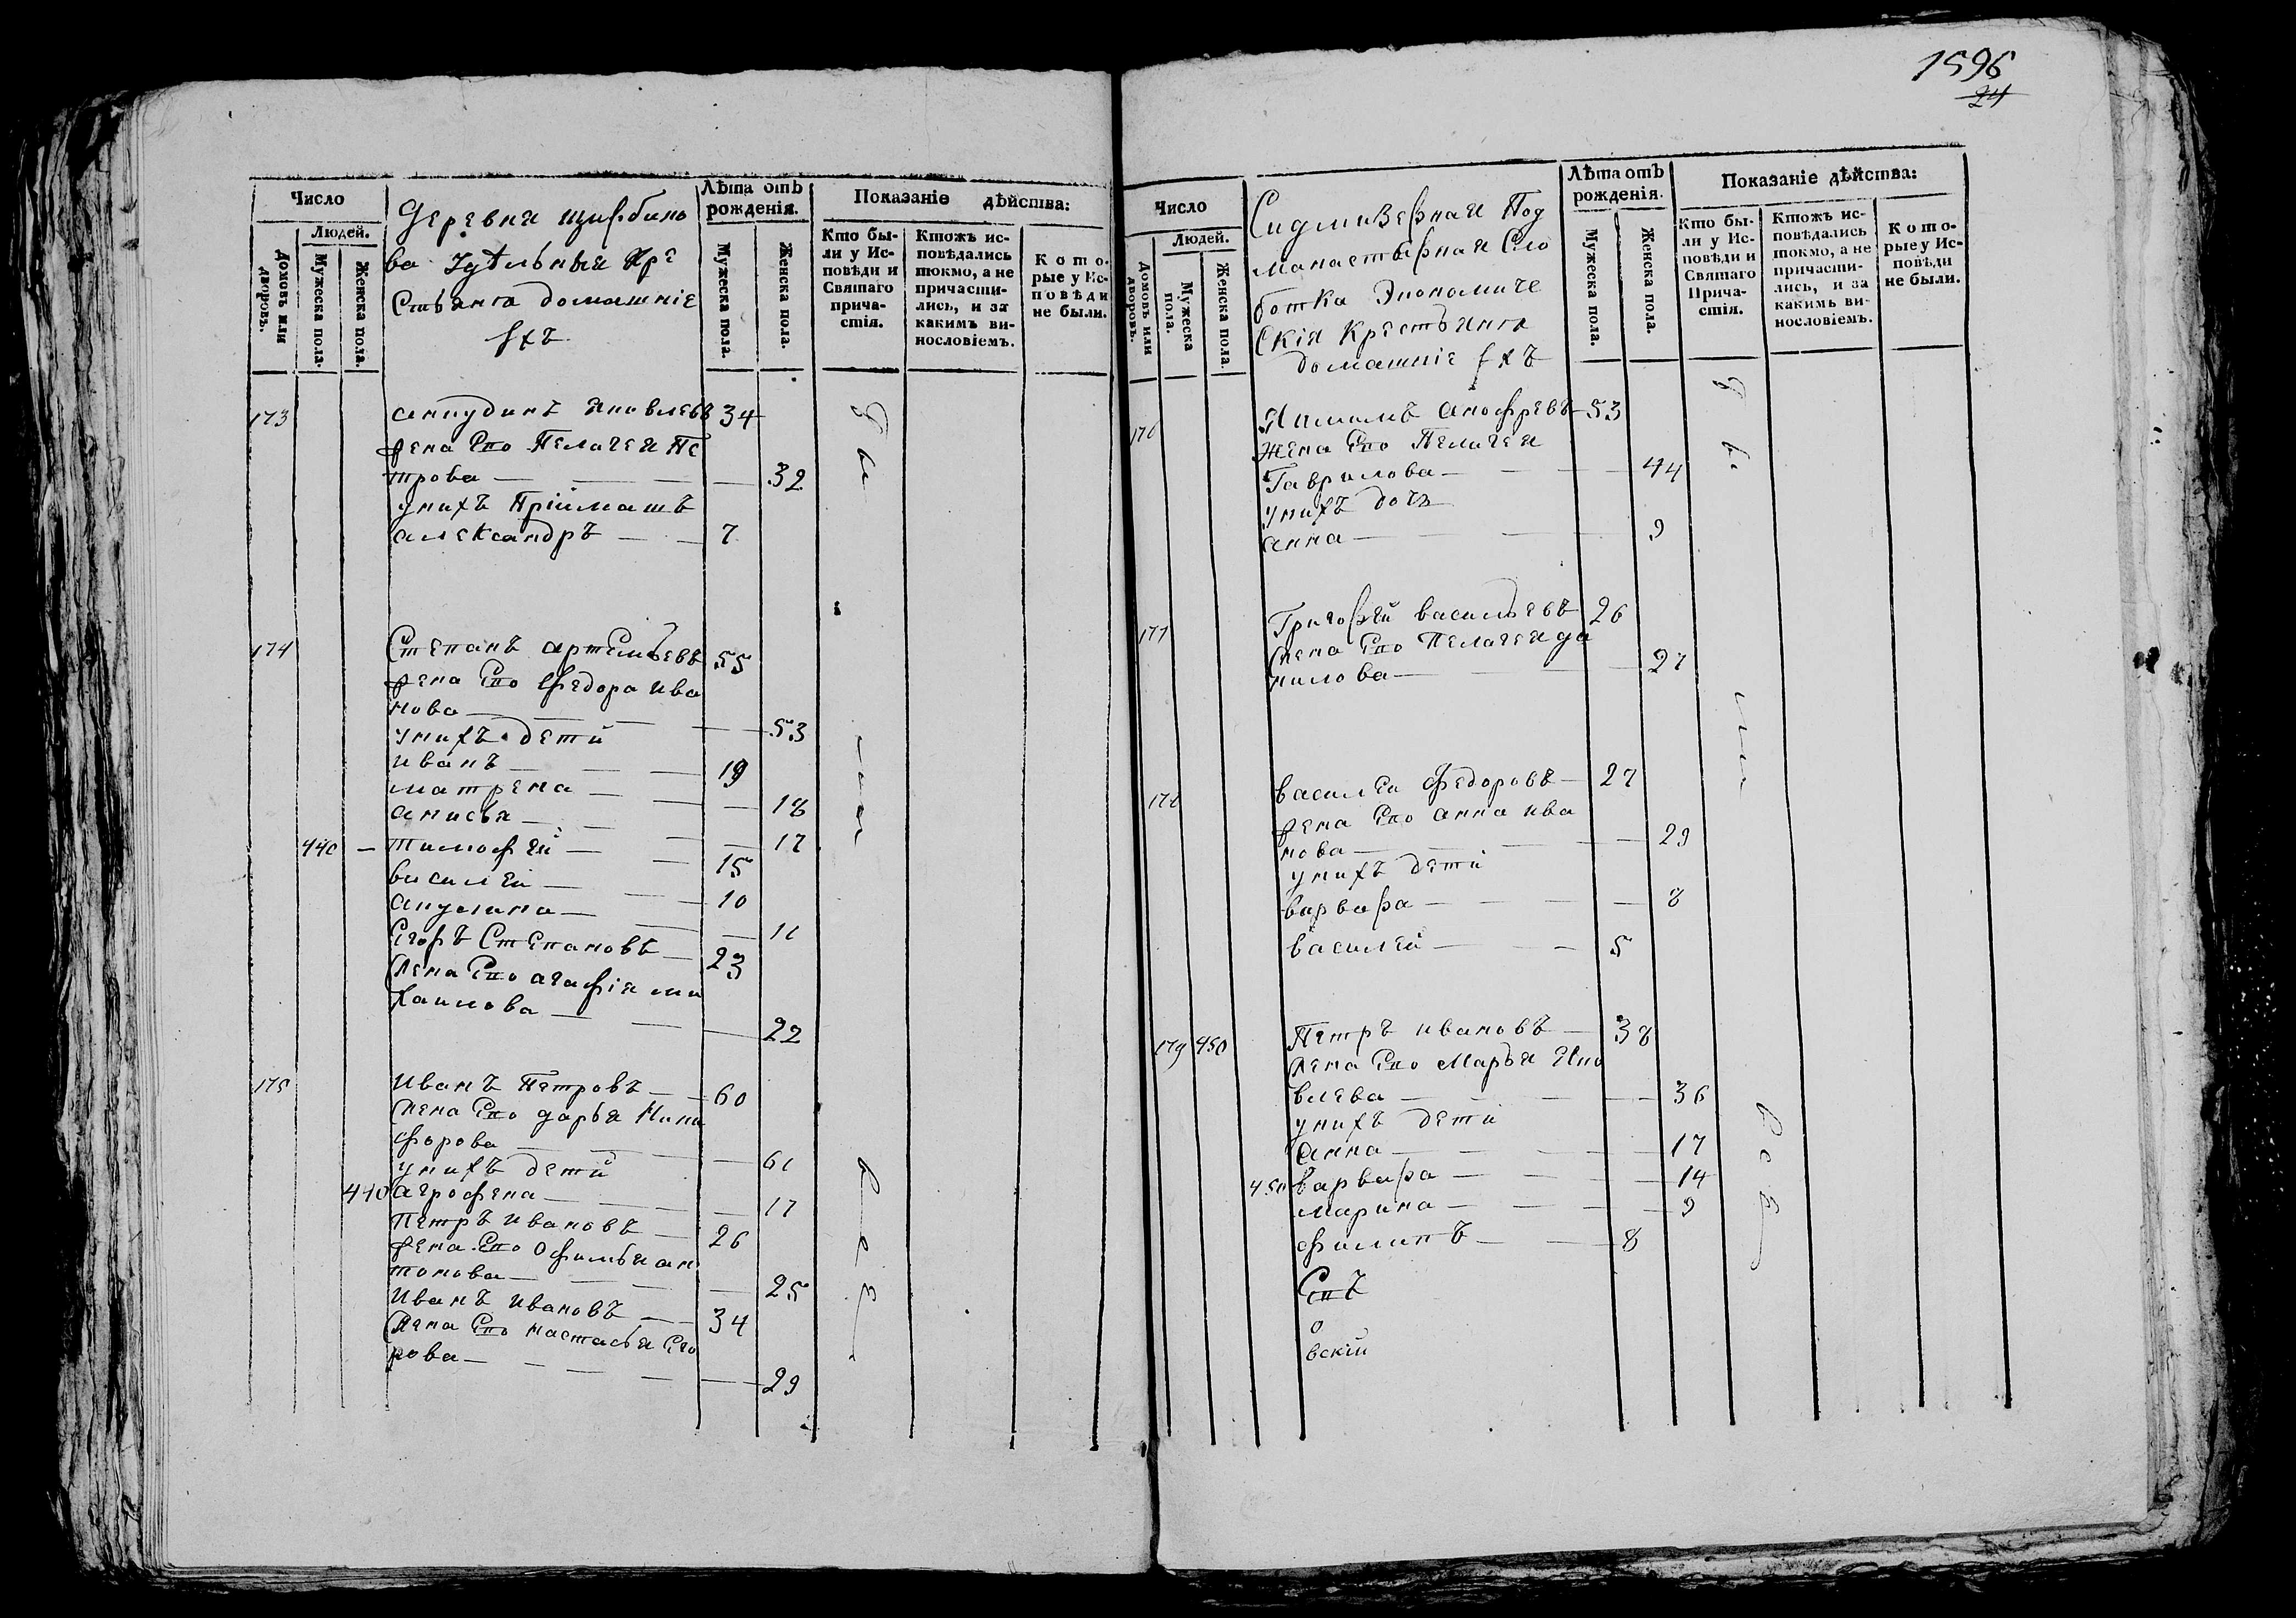 Число
Людей.
Домовъ или дворовъ.
Мужеска пола.
Женска пола.
Деревня щирбино
ва удѣльныя Кре
Стьяня домашніе
ихъ
Лѣта отъ рожденія.
Мужеска пола.
Женска пола.
Показаніе дѣйства:
Кто бы-
ли у Ис-
повѣди и
Святаго
прича-
стія.
Ктожъ ис-
повѣдались
токмо, а не
причасти-
лись, и за
какимъ ви-
нословіемъ.
Кото-
рые у Ис-
повѣди
не были.
173 анкудинъ яковлевъ 34
жена Его Пелагея Пе
трова — — — — 32
унихъ Пріймашъ
александръ — — 7
174 Степанъ артемьевъ 55
жена Его Федора ива
нова — — — — 53
унихъ дети
иванъ — — — 19
матрена — — — 18
анисья — — — 17
440 — тимофей — — 15
василей — — 10
акулина — — — 11
Егоръ Степановъ — 23
жена Его агафія ми
хаилова — — — 22
175 иванъ Петровъ — — 60
жена Его дарья Ники
форова — — — 61
унихъ дети
440 агрофена — — — 17
Петръ ивановъ — 26
жена Его Офимья ан
тонова — — — 25
иванъ ивановъ — — 34
жена Его настасья Его
рова — — — — 29
1596
24
Число
Людей.
Домовъ или дворовъ.
Мужеска пола.
Женска пола.
Сидмизерная Под
манастырная Сло
ботка Экономиче
Скія Крестьяня
домашніе ихъ
Лѣта отъ рожденія.
Мужеска пола.
Женска пола.
Показаніе дѣйства:
Кто бы-
ли у Ис-
повѣди и
Святаго
Прича-
стія.
Ктожъ ис-
повѣдались
токмо, а не
причасти-
лись, и за
какимъ ви-
нословіемъ.
Кото-
рые у Ис-
повѣди
не были.
176 анофревъ — 53
жена Его Пелагея
Гаврилова — — — 44
унихъ дочь
анна — — — — 9
177 Григорей васильевъ 26
жена Его Пелагея да
нилова — — — 27
178 василеи федоровъ — 27
жена Его анна ива
нова — — — — 29
унихъ дети
варвара — — — 8
василей — — 5
179 450 Петръ ивановъ — 38
жена Его Марья Яко
влева — — — — 36
унихъ дети
анна — — — — 17
450 варвара — — — 14
марина — — — 9
филипъ — — 8
вскій